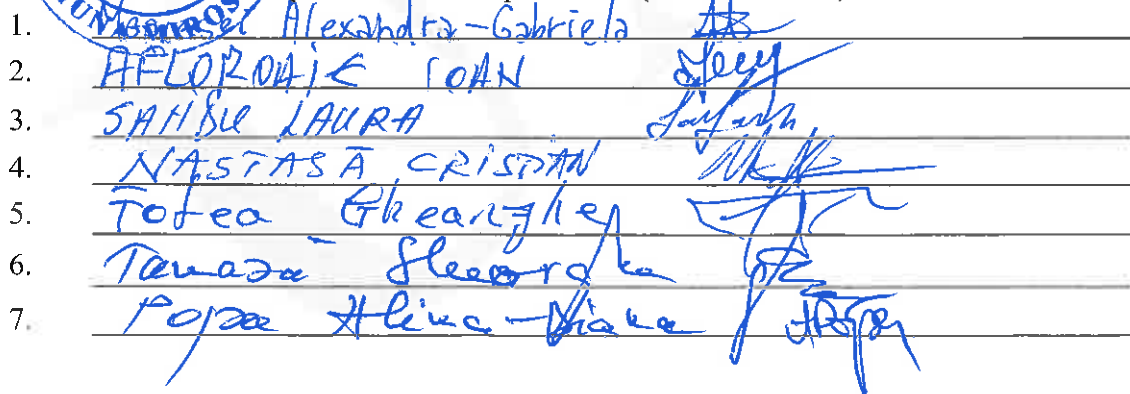 1. Alexandra-Gabriela
2. AFLOROAIE IOAN
3. SANDU LAURA
4. NASTASĂ CRISTIAN
5. Tofea Gheorghe
6. Tanasă Gheorghe
7. Popa Alina-Diana